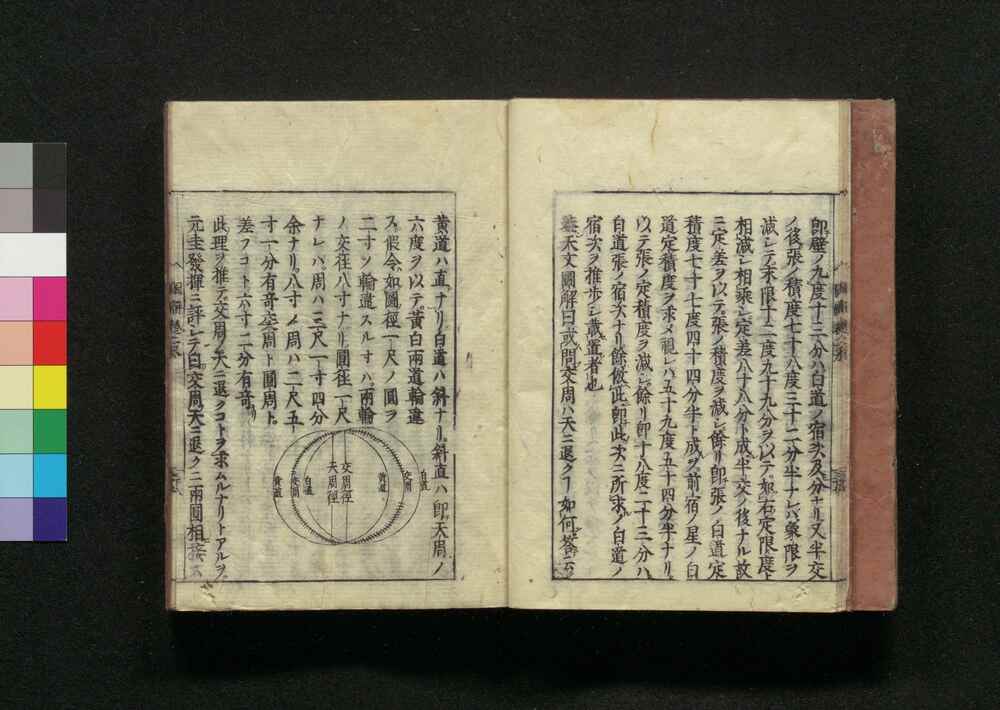 即壁ノ九度十三分ハ白道ノ宿次及分ナリ又半交
ノ後張ノ積度七十八度三十二分半ナレバ象限ヲ
減レテ求限十二度九十九分ヲ以テ如右定限度ト
相減レ相乘レ定差八十八分ト成半交ノ後ナル故
ニ定差ヲ以テ張ノ積度ヲ減レ餘リ即張ノ白道定
積度七十七度四十四分半ト成ヲ前宿ノ星ノ白
道定積度ヲ求メ視レハ五十九度五十四分半ナリ
以テ張ノ定積度ヲ減レ餘リ即十八度二十三分ハ
白道張ノ宿次ナリ餘倣此即此次ニ所求ノ白道ノ
宿次ヲ推歩レ載置者也
天文圖解曰或問交周ハ天ニ退クヿ如何答云
黄道ハ直ナリ白道ハ斜ナリ斜直ハ即天周ノ
六度ヲ以テ黄白兩道輪違
ス假令如圖徑一尺ノ圓ヲ
二寸ツヽ輪違スルオハ兩輪
ノ交徑八寸ナリ圓徑一尺
ナレハ周ハ三尺一寸四分
余ナリ八寸ノ周ハ二尺五
寸一分有奇交周ト圓周ト
差フコト六寸二分有奇
此理ヲ推テ交周ノ天ニ退クコトヲ求ムルナリトアルヲ
元圭發揮ニ評レテ曰交周天ニ退クニ兩圓相接
白道
交周
黄道
交周徑
天周徑
白道
交周
黄道